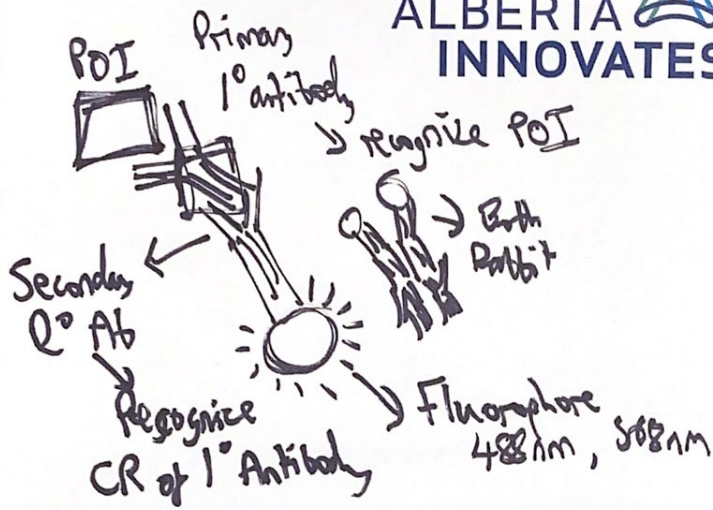 ALBERTA
INNOVATES
POI
Primary
1° antibody
recognize POI
Both
Rabbit
Secondary
2° Ab
Recognize
CR of 1° Antibody
Fluorophore
488nm, 568nm